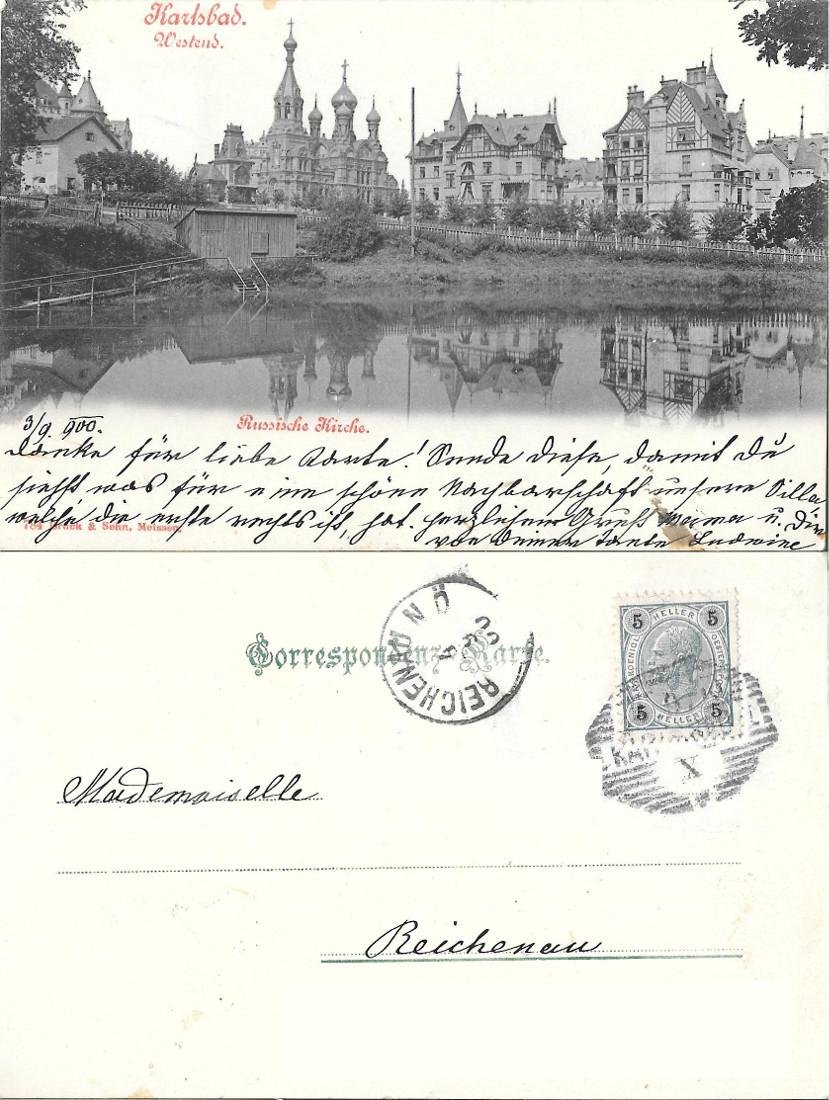 Karlsbad.
Westend.
3/9 900.
Russische Kirche.
Danke für liebe Karte! Sende diese, damit Du
siehst was für eine schöne Nachbarschaft unsere Villa
welche die erste rechts ist, hat. Herzlichen Gruß Mama u. Dir
von Deiner Tante Ludwine
784 Bruck & Sohn, Meissen.
Correspondenz-Karte.
REICHENAU N Ö
5 HELLER 5
5 HELLER 5
X
Mademoiselle
Reichenau